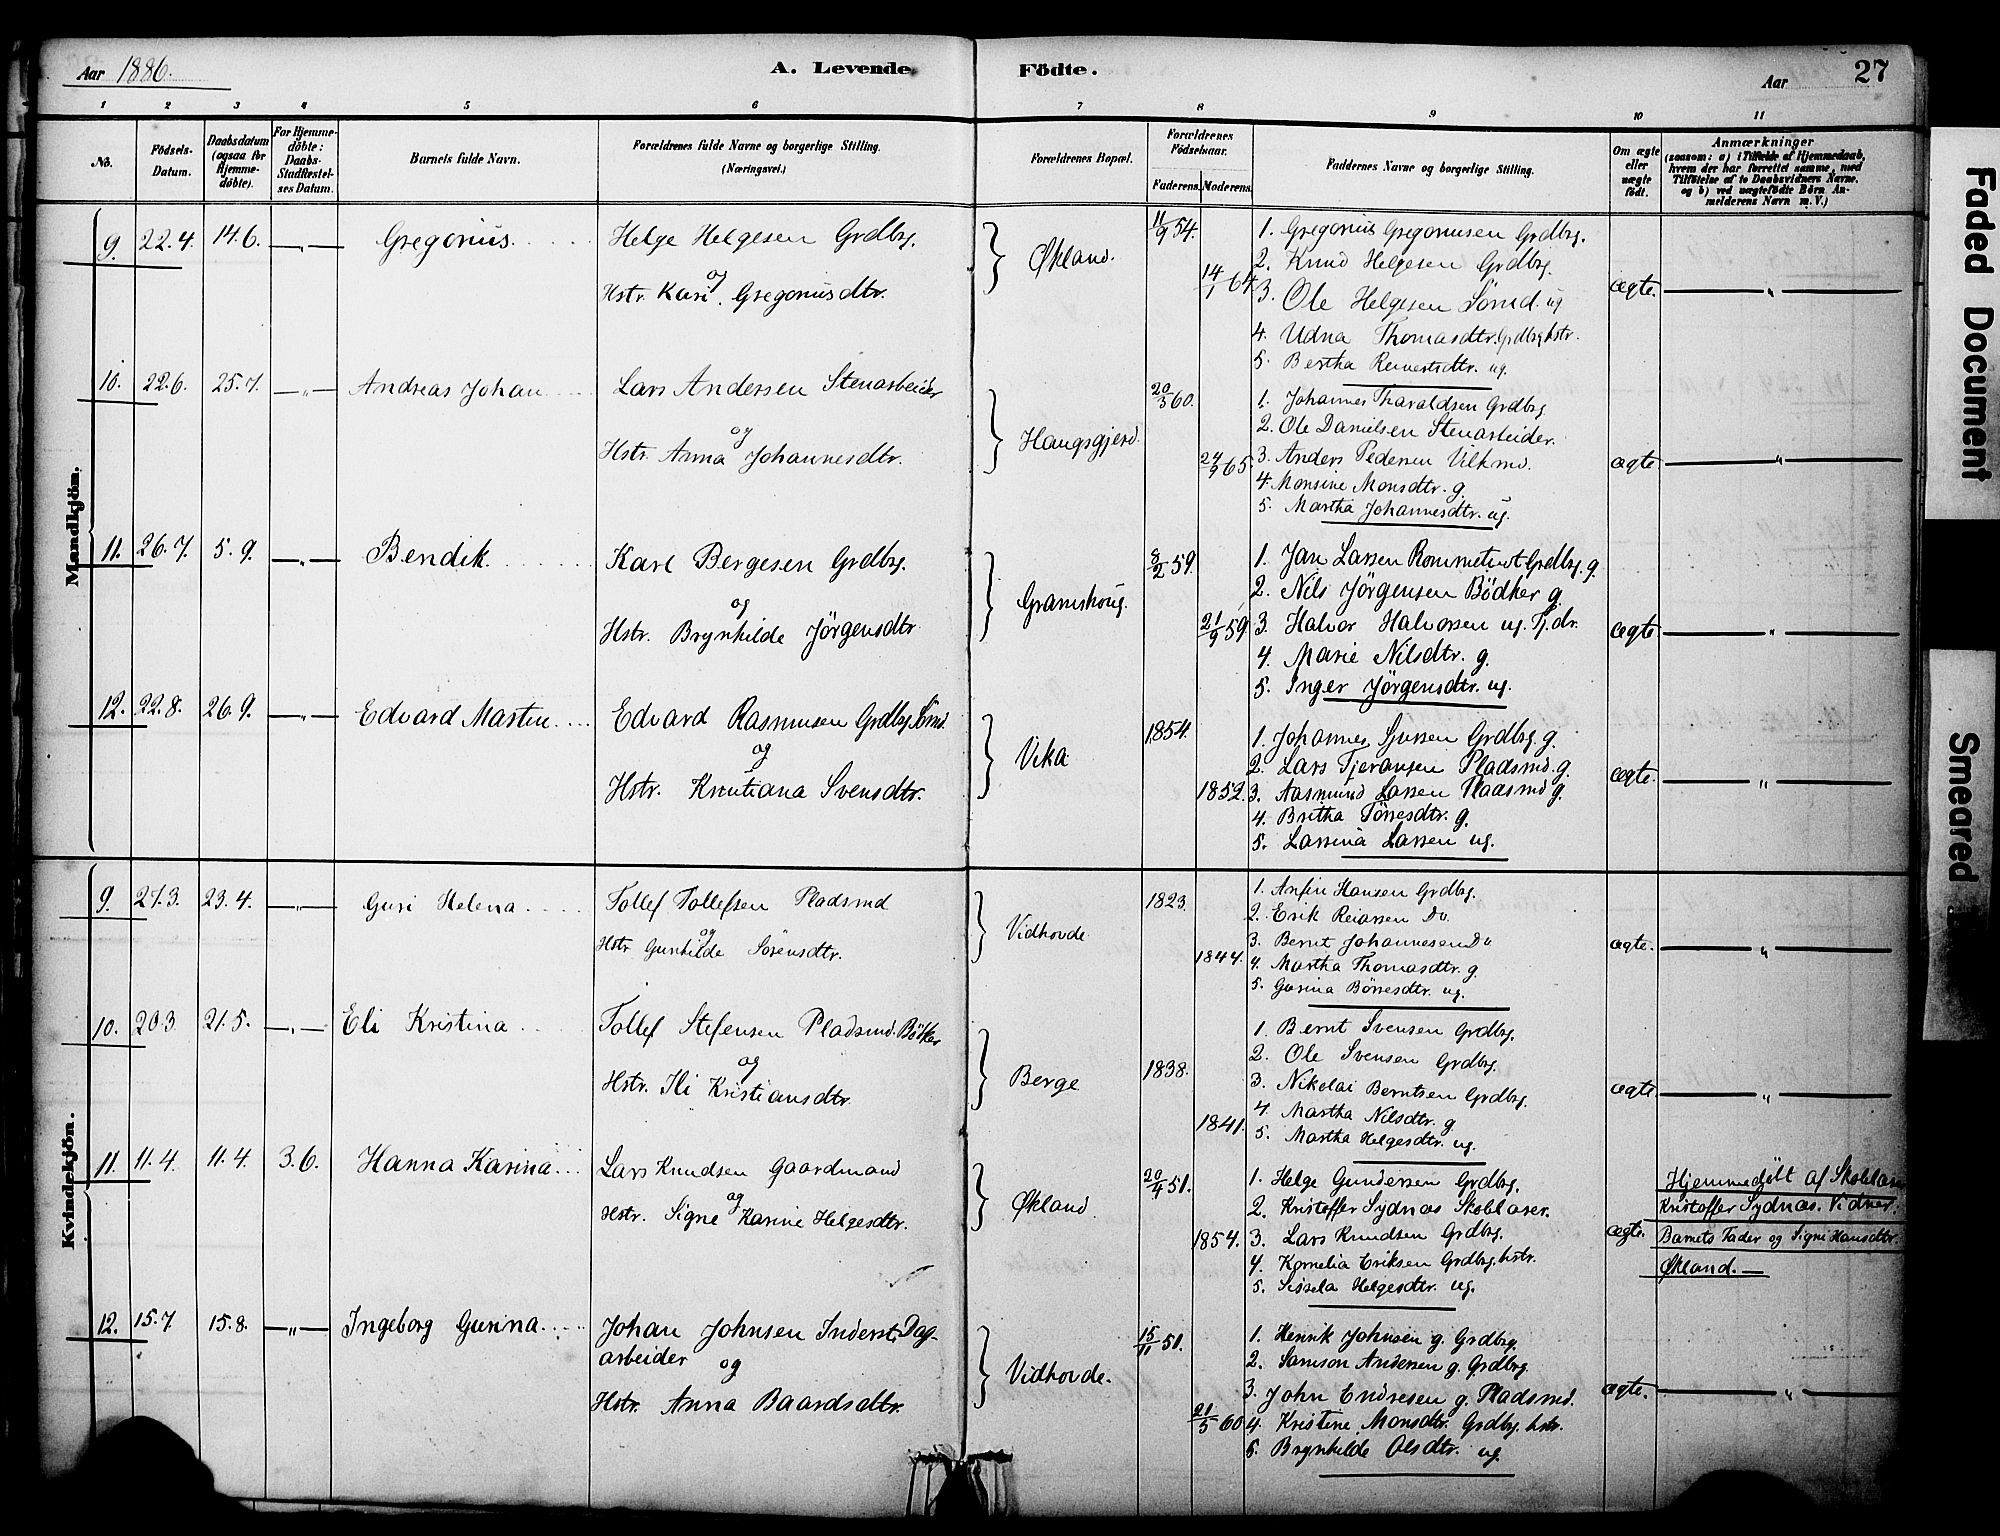 Aar 1886. A. Levende Födte. Aar 27
1 2 3 4 5 6 7 8 9 10 11
No. Födsels-Datum. Daabsdatum (ogsaa for Hjemme-döbte). For Hjemme-döbte: Daabs-Stadfæstel-ses Datum. Barnets fulde Navn. Forældrenes fulde Navne og borgerlige Stilling. (Næringsvei.) Forældrenes Bopæl. Forældrenes Födselsaar. Faderens. Moderens. Faddernes Navne og borgerlige Stilling. Om ægte eller uægte födt. Anmærkninger (saasom: a) i Tilfælde af Hjemmedaab, hvem der har forrettet samme, med Tilföielse af to Daabsvidners Navne, og b) ved uægtefödte Börn Anmelderens Navn m. V.)
Mandkjön.
9. 22.4. 14.6. —„— Gregorius. Helge Helgesen Grdbrg. Økland. 11/9 54. 1. Gregorius Gregoriusen Grdbrg.
og 2. Knud Helgesen Grdbrg.
Hstr. Kari Gregoriusdtr. 14/1 64. 3. Ole Helgesen Sømd. ug ægte. —„—
4. Udna Thomasdtr. Grdbrghstr.
5. Bertha Reinertsdtr. ug.
10. 22.6. 25.7. —„— Andreas Johan Lars Andersen Stenarbeider Haugsgjerd. 20/5 60. 1. Johannes Tharaldsen Grdbrg
og 2. Ole Danielsen Stenarbeider.
Hstr. Anna Johannesdtr. 24/9 65. 3. Anders Pedersen Vilkmd. ægte —„—
4. Monsine Monsdtr. g.
5. Martha Johannesdtr. ug.
11. 26.7. 5.9. —„— Bendik. Karl Bergesen Grdbrg. Gramshoug. 8/2 59. 1. Jan Larsen Rommetveit Grdbrg. g.
2. Nils Jörgensen Bödker g.
og
Hstr. Brynhilde Jörgensdtr 21/9 59. 3. Halvor Halvorsen ug. Tj.dr. ægte —„—
4. Marie Nilsdtr. g.
5. Inger Jörgensdtr. ug.
12. 22.8. 26.9. —„— Edvard Martin Edvard Rasmusen Grdbrg Sömd. Vika 1854. 1. Johannes Sjursen Grdbrg. g.
og 2. Lars Tjeransen Pladsmd. g.
Hstr. Knutiana Svensdtr. 1852. 3. Aasmund Larsen Pladsmd g. ægte. —„—
4. Britha Törresdtr. g.
5. Larsina Larsen ug.
Kvindekjön.
9. 27.3. 23.4. —„— Guri Helena Tollef Tollefsen Pladsmd Vidhovde 1823. 1. Anfin Hansen Grdbrg.
2. Erik Reiarsen Do
og 3. Bernt Johannesen Do
Hstr Gunhilde Sörensdtr. 1844. 4. Martha Thomasdtr. g. ægte. —„—
5. Gurina Börresdtr. ug.
10. 20.3. 21.5. —„— Eli Kristina Tollef Stefensen Pladsmd. Bödker Berge 1838. 1. Bernt Svensen Grdbrg.
2. Ole Svensen Grdbrg.
og 3. Nikolai Berntsen Grdbrg. ægte. —„—
Hstr. Ili Kristiansdtr. 4. Martha Nilsdtr. g
1841. 5. Martha Helgesdtr. ug.
11. 11.4. 11.4. 3.6. Hanna Karina Lars Knudsen Gaardmand Økland 20/4 51. 1. Helge Gundersen Grdbrg. Hjemmedøbt af Skolelærer
og 2. Kristoffer Sydnæs Skolelærer. Kristoffer Sydnæs. Vidner:
Hstr. Signe Karine Helgesdtr. 1854. 3. Lars Knudsen Grdbrg. ægte. Barnets Fader og Signe Hansdtr.
4. Kornelia Eriksen Grdbrg. hstr. Økland.—
5. Sissela Helgesdtr. ug.
12. 15.7. 15.8. —„— Ingeborg Gurina Johan Johnsen Inderst, Dag- Vidhovde. 15/11 51. 1. Henrik Johnsen g. Grdbrg.
arbeider og 2. Samson Andersen g. Grdbrg
3. John Endresen g. Pladsmd. ægte. —„—
Hstr. Anna Baardsdtr. 21/5 60. 4. Kristine Monsdtr. Grdbrg. hstr.
5. Brynhilde Olsdtr. ug
Faded Document
Smeared